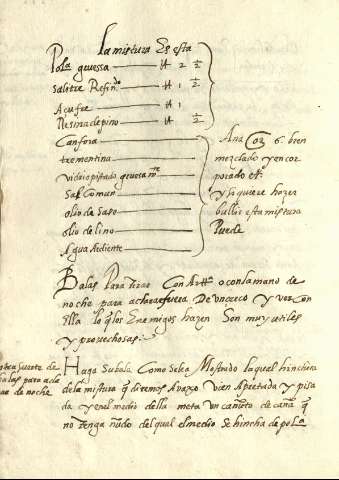 la mistura Es esta
Pol.a gruessa — lt 2 ½
Salitre Refin.do — lt 1 ½
Acufre — lt 1
Resina de pino — lt ½
Canfora
trementina
vidrio pistado gruesam.te
Sal Comun
olio de Sapo
olio de lino
Agua Ardiente
Ana oz 6 bien
mezclado y encor
porado et.
y si quiere hazer
bullir esta mistura
Puede
Balas Para tirar Con Art.a o con la mano de
noche para aclarar fuera De un Arco y ver con
Ella lo q̃ los Enemigos hazen Son muy utiles
y provechosas
otra suerte de
balas para acla
rar de noche
Haga Su bala Como Se les a Mostrado la qual hinchera
de la mistura q̃ diremos Avaxo vien Apretada y pisa
da y en el medio della meta un cañuto de caña q̃
no tenga ñudo del qual el medio Se hincha de pol.a